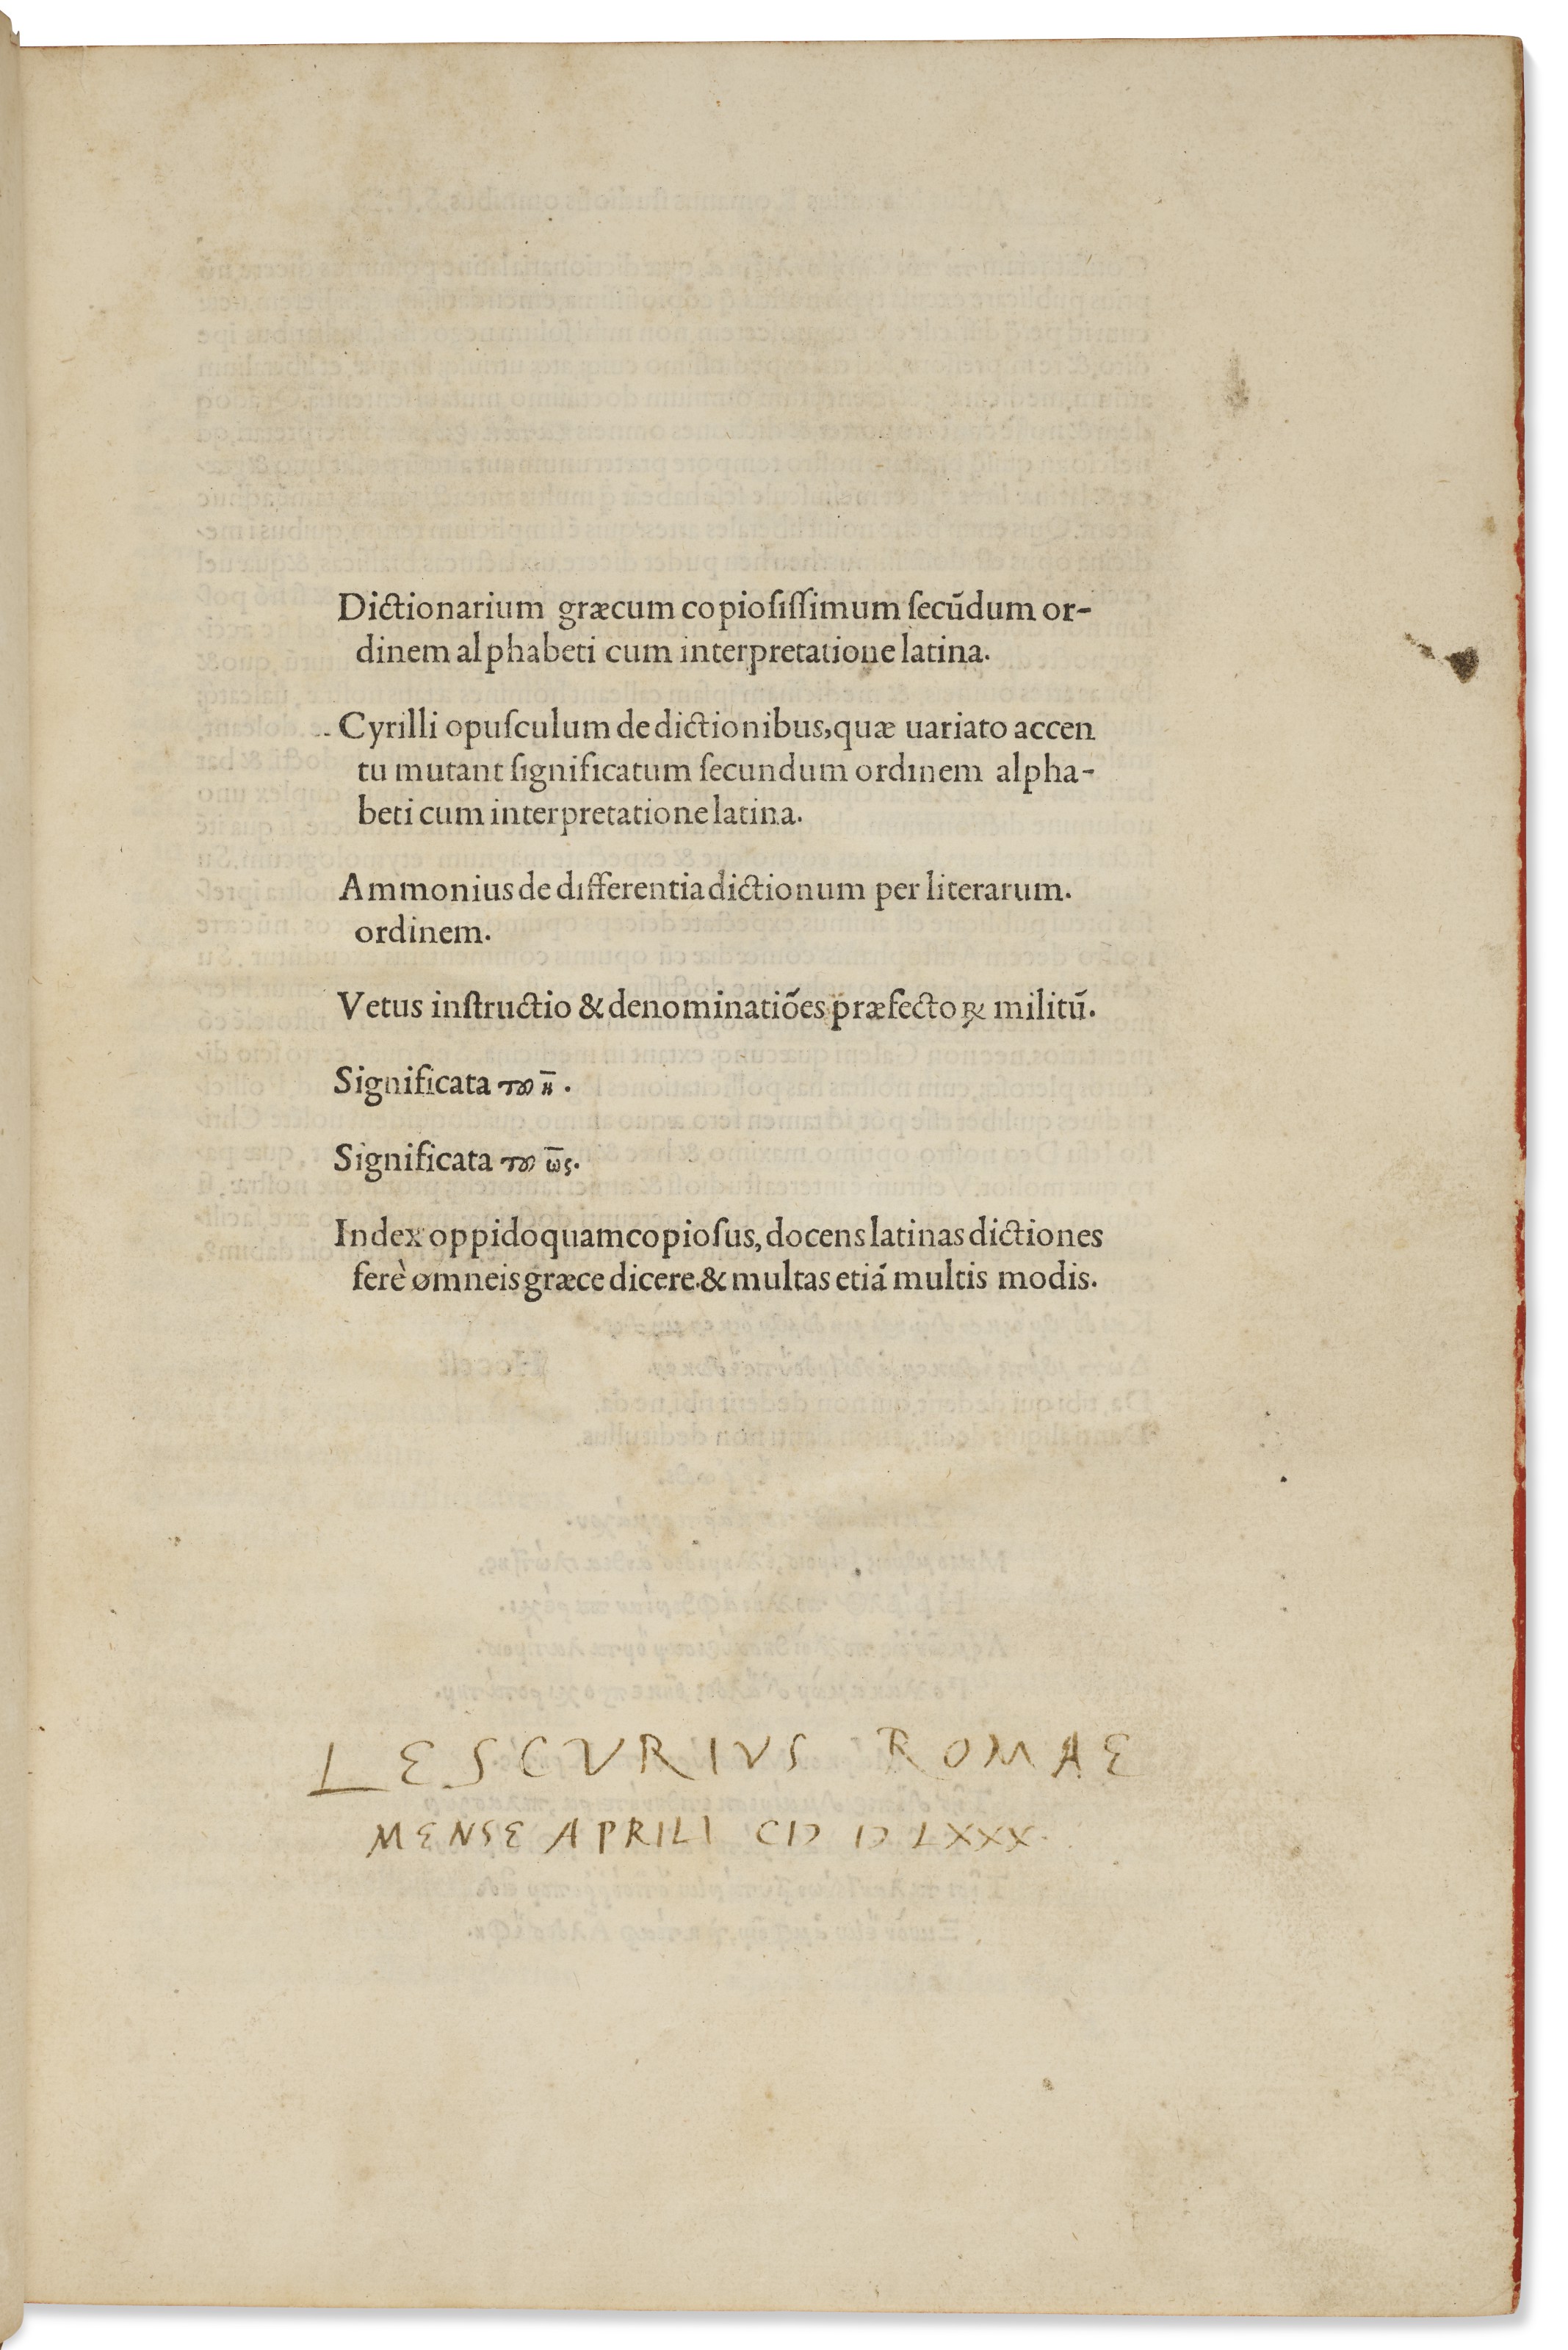 Dictionarium græcum copioſiſſimum ſecūdum or-
dinem alphabeti cum interpretatione latina.
Cyrilli opuſculum de dictionibus, quæ uariato accen
tu mutant ſignificatum ſecundum ordinem alpha-
beti cum interpretatione latina.
Ammonius de differentia dictionum per literarum.
ordinem.
Vetus inſtructio & denominatiōes præfectoꝝ militū.
Significata τοῦ η̄.
Significata τοῦ ω̄ς.
Index oppido quam copioſus, docens latinas dictiones
ferè omneis græce dicere. & multas etiā multis modis.
LESCVRIVS ROMAE
MENSE APRILI CIↃ IↃ LXXX.